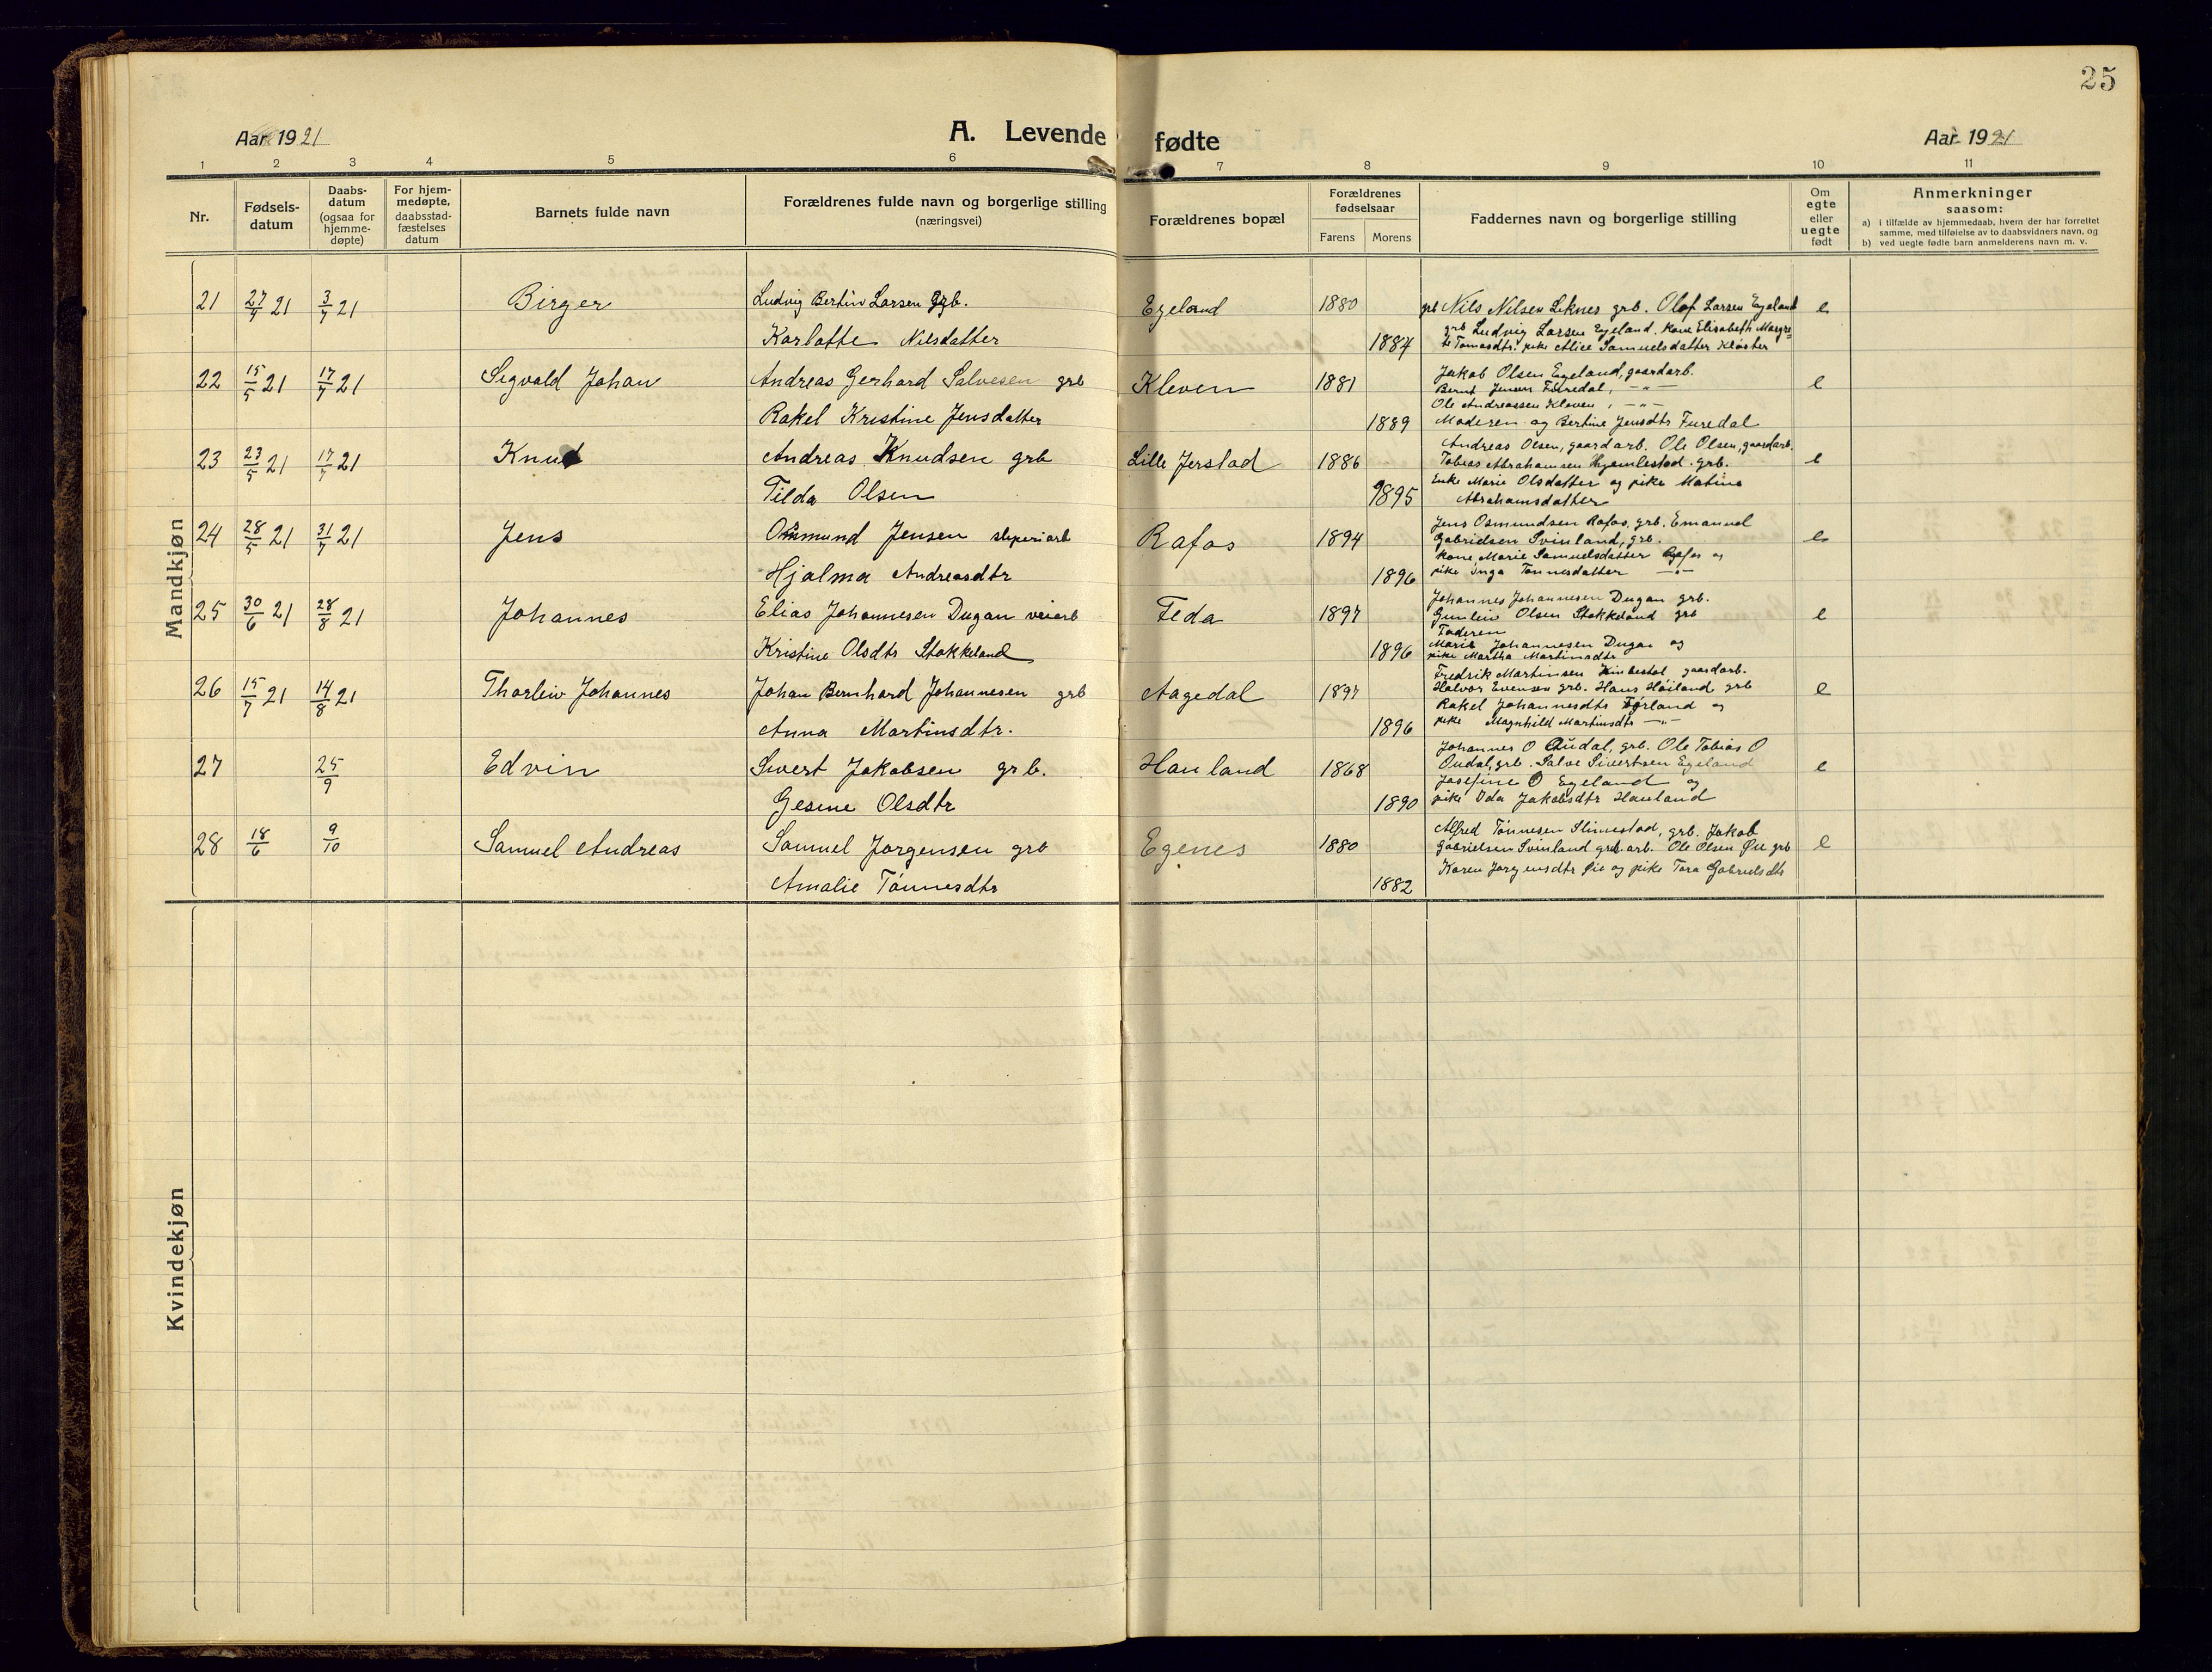 25
Aar 1921 A. Levende fødte Aar 1921
1 2 3 4 5 6 7 8 9 10 11
Nr. Fødselsdatum Daabsdatum (ogsaa for hjemmedøpte) For hjemmedøpte, daabsstadfæstelses datum Barnets fulde navn Forældrenes fulde navn og borgerlige stilling (næringsvei) Forældrenes bopæl Forældrenes fødselsaar Farens Morens Faddernes navn og borgerlige stilling Om egte eller uegte født Anmerkninger saasom:
a) i tilfælde av hjemmedaab, hvem der har forrettet samme, med tilføielse av to daabsvidners navn, og
b) ved uegte fødte barn anmelderens navn m. v.
Mandkjøn
21 27/4 21 3/7 21 Birger Ludvig Bertin Larsen grb. Egeland 1880 Nils Nilsen Leknes grb. Olaf Larsen Egeland e
Karlotte Nilsdatter 1884 grb Ludvig Larsen Egeland. Kone Elisabeth Margre=
te Tomasdtr. pike Alice Samuelsdatter Kloster
22 15/5 21 17/7 21 Sigvald Johan Andreas Gerhard Salvesen grb Kleven 1881 Jakob Olsen Egeland, gaardarb. e
Bernt Jensen Furedal, -"-
Ole Andreassen Kleven, -"-
Rakel Kristine Jensdatter 1889 Moderen og Bertine Jensdtr Furedal
23 23/5 21 17/7 21 Knud Andreas Knudsen grb Lille Jerstad 1886 Andreas Olsen, gaardarb. Ole Olsen, gaardarb. e
Tobias Abrahamsen Hjemlestad. grb.
Tilda Olsen 1895 Enke Marie Olsdatter og pike Matine
Abrahamsdatter
24 28/5 21 31/7 21 Jens Osmund Jensen sliperiarb Rafos 1894 Jens Osmundsen Rafos, grb. Emanuel e
Gabrielsen Svinland, grb.
Hjalma Andreasdtr 1896 kone Marie Samuelsdatter Rafos og
pike Inga Tønnesdatter -"-
25 30/6 21 28/8 21 Johannes Elias Johannesen Dugan veiarb Feda 1897 Johannes Johannesen Dugan grb. e
Gunleiv Olsen Stokkeland grb
Faderen
Kristine Olsdtr Stokkeland 1896 Marie Johannesen Dugan og
pike Martha Martinadtr
26 15/7 21 14/8 21 Thorleiv Johannes Johan Bernhard Johannesen grb Aagedal 1897 Fredrik Martinsen gaardarb. e
Halvor Evensen grb. Hans Høiland grb
Rakel Johannesdtr Førland og
Anna Martinsdtr. 1896 pike Magnhild Martinsdtr -"-
27 25/9 Edvin Sivert Jakobsen grb. Hauland 1868 Johannes O Oudal, grb. Ole Tobias O e
Oudal, grb. Salve Sivertsen Egeland
Josefine O Egeland og
Gesine Olsdtr 1890 pike Ida Jakobsdtr Hauland
28 18/6 9/10 Samuel Andreas Samuel Jørgensen grb Egenes 1880 Alfred Tønnesen Slimestad, grb. Jakob e
Gabrielsen Svinland grb.arb. Ole Olsen Øie grb
Amalie Tønnesdtr 1882 Karen Jørgensdtr Øie og pike Tora Gabrielsdtr
Kvindekjøn